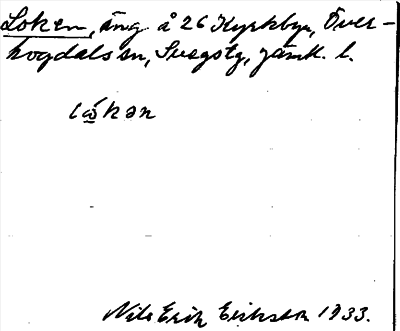 Loken, äng å 26 Kyrkbyn, Över-
hogdals sn, Svegs tg, Jämtl. l.
Nils Erik Eriksson 1933.